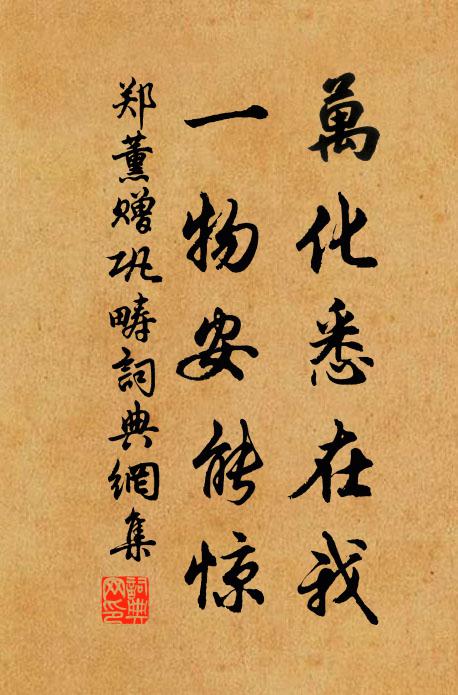 萬化悉在我
一物安能惊
郑薰赠巩畴詞典網集
詞典网印